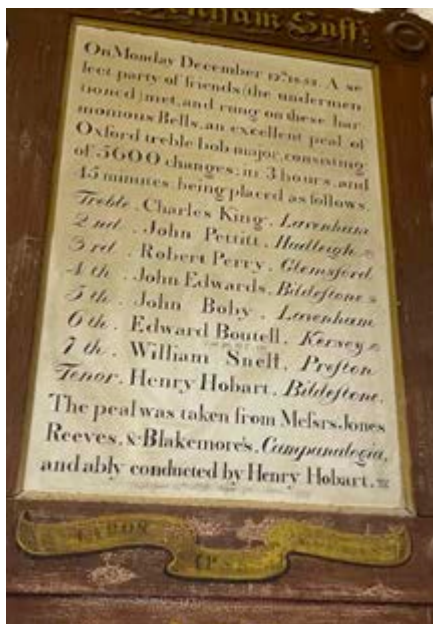 Suff:
On Monday December 12th 18 . A se
lect party of friends (the undermen
tioned) met, and rung on these har
monious Bells, an excellent peal of
Oxford treble bob major, consisting
of 5600 changes: in 3 hours, and
45 minutes: being placed as follows.
Treble . Charles King . Lavenham
2nd . John Pettitt . Hadleigh
3rd . Robert Perry . Glemsford
4th . John Edwards . Bildestone
5th . John Boby . Lavenham
6th . Edward Boutell . Kersey
7th . William Snell . Preston
Tenor . Henry Hobart . Bildestone.
The peal was taken from Messrs. Jones
Reeves, & Blakemore's, Campanalogia,
and ably conducted by Henry Hobart.
LABOR
IPSE